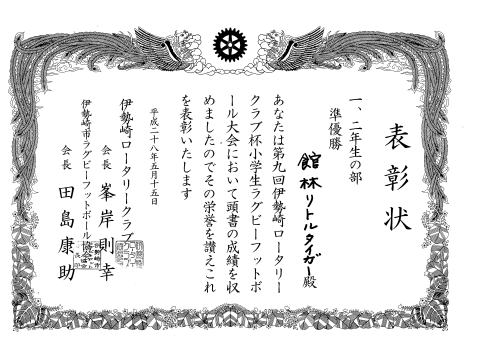 表彰状
一、二年生の部
準優勝
館林リトルタイガー殿
あなたは第九回伊勢崎ロータリー
クラブ杯小学生ラグビーフットボ
ール大会において頭書の成績を収
めましたのでその栄誉を讃えこれ
を表彰いたします
平成二十八年五月十五日
伊勢崎ロータリークラブ
会長 峯岸則幸
伊勢崎市ラグビーフットボール協会
会長 田島康助